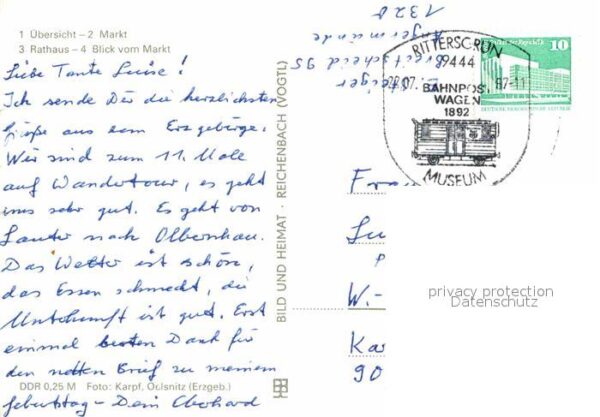 1 Übersicht – 2 Markt
3 Rathaus – 4 Blick vom Markt
Liebe Tante Luise!
Ich sende Dir die herzlichsten
Grüße aus dem Erzgebirge.
Wir sind zum 11. Male
auf Wandertour, es geht
uns sehr gut. Es geht von
Lauter nach Olbernhau.
Das Wetter ist schön,
das Essen schmeckt, die
Unterkunft ist gut. Erst
einmal besten Dank für
den netten Brief zu meinem
DDR 0,25 M Foto: Karpf, Oelsnitz (Erzgeb.)
Geburtstag – Dein Eberhard
BILD UND HEIMAT · REICHENBACH (VOGTL)
Steiger
Breitscheid 95
Angermünde
1320
RITTERSGRÜN
9444
22.07. 87-11
BAHNPOST
WAGEN
1892
MUSEUM
10
DEUTSCHE DEMOKRATISCHE REPUBLIK
Fra
Lu
W.-
Ka
90
privacy protection
Datenschutz